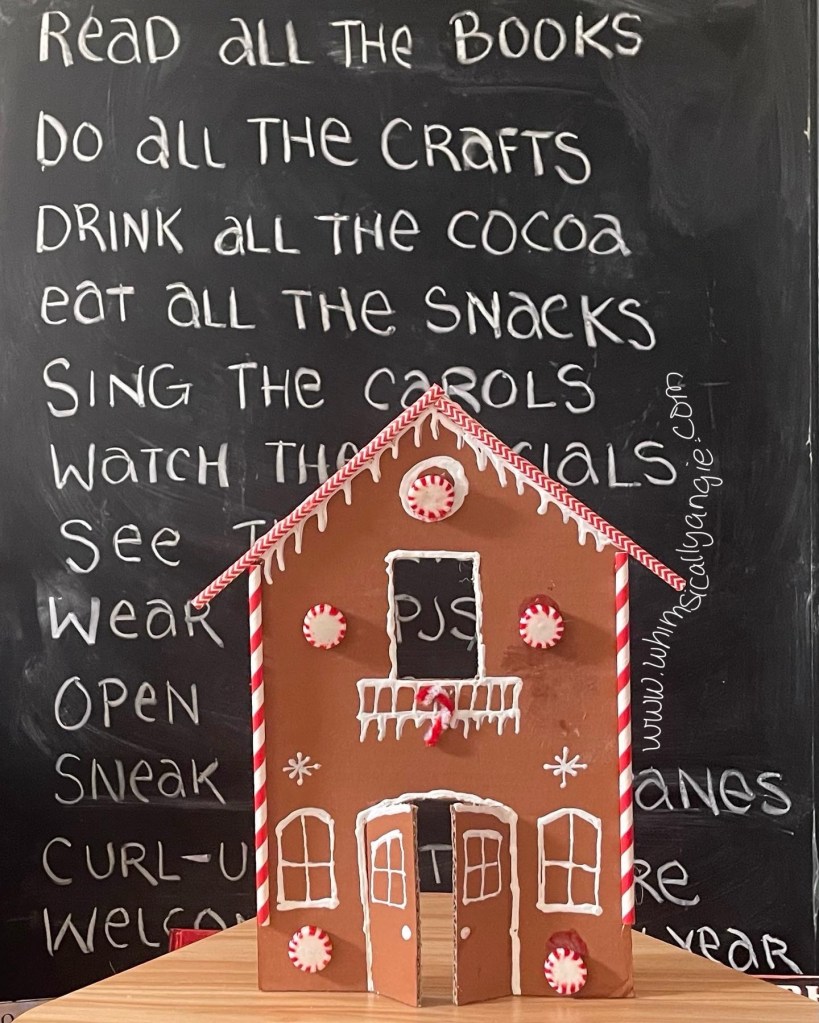 Read all THe BOOKS
DO all THe CRafTS
DRINK all THe COCOa
eaT all THe SNacKS
SING THe CaROLS
WaTCH THe IALS
See T
WeaR PJS
OPeN
SNeaK aNeS
CURL-U T Re
WeLCO YeaR
www.whimsicallyangie.com